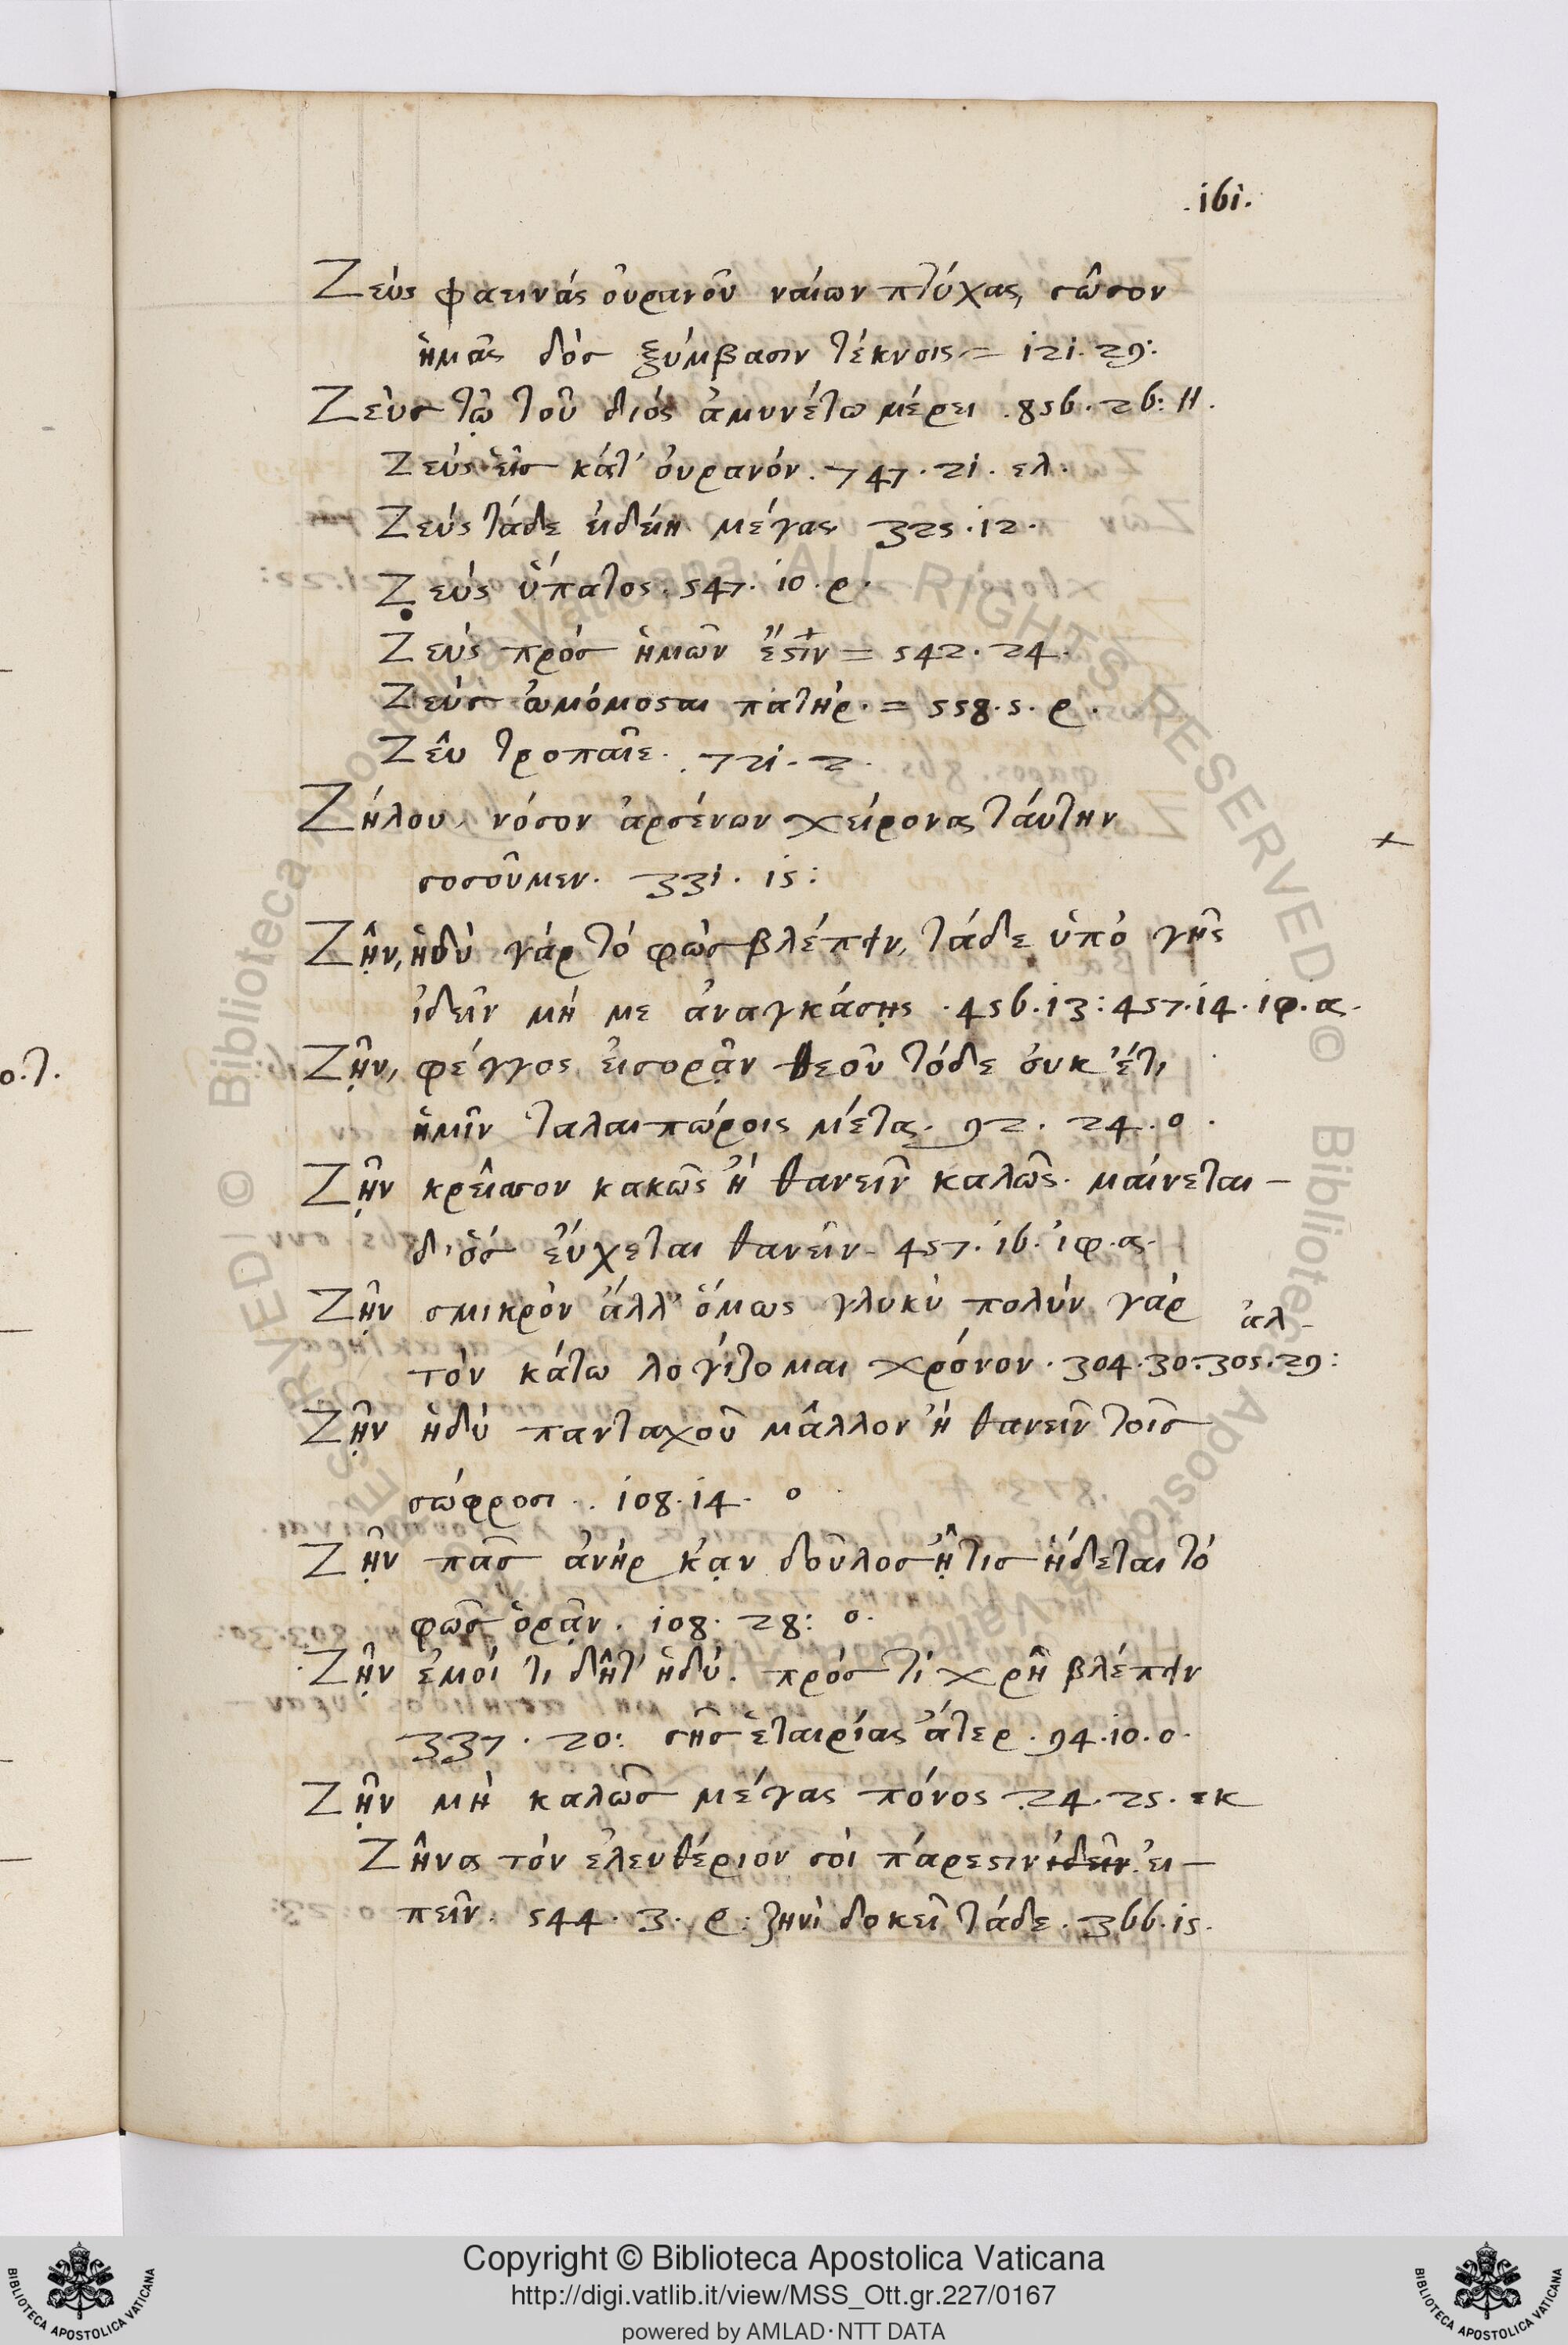 .161.
Ζεύς φαεινάς οὐρανοῦ ναίων πτύχας, σῶσον
ἡμᾶς δός ξύμβασιν τέκνοις = 121. 29:
Ζεὺς τῷ τοῦ διός ἀμυνέτω μέρει . 856. 26: Η.
Ζεύς εἷς κάτ' οὐρανόν. 747. 21. ελ.
Ζεύς τάδε εἰδείη μέγας 325. 12.
Ζεύς ὕπατος. 547. 10. ρ.
Ζεύς πρός ἡμῶν ἔστιν = 542. 24.
Ζεύς ὀμόμοσται πατήρ. = 558. 5. ρ.
Ζεῦ τροπαῖε. . 721. 2.
Ζήλου, νόσον ἀρσένων χείρονας ταύτην
νοσοῦμεν. 331. 15:
Ζῆν, ἡδύ γάρ τό φῶς βλέπειν, τάδε ὑπό γῆς
ἰδεῖν μή με ἀναγκάσῃς . 456. 13: 457. 14. ιφ. α.
Ζῆν, φέγγος εἰσορᾷν θεοῦ τόδε οὐκ ἔτι
ἡμῖν ταλαιπώροις μέτα. 92. 24. ο.
Ζῆν κρεῖσσον κακῶς ἤ θανεῖν καλῶς. μαίνεται –
δ' ὅς εὔχεται θανεῖν. 457. 16. ιφ. α.
Ζῆν σμικρόν ἀλλ' ὅμως γλυκύ πολύν γάρ αλ –
τόν κάτω λογίζομαι χρόνον. 304. 30: 305. 29:
Ζῆν ἡδύ πανταχοῦ μᾶλλον ἤ θανεῖν τοῖς
σώφροσι . . 108. 14. ο
Ζῆν πᾶς ἀνήρ κᾂν δοῦλος ᾖ τις ἥδεται τό
φῶς ὁρᾷν. 108. 28: ο.
Ζῆν ἐμοί τι δῆτ' ἡδύ. πρός τί χρῆ βλέπειν
337. 20: σῆς ἑταιρίας ἄτερ. 94. 10. ο.
Ζῆν μή καλῶς μέγας πόνος 24. 25. εκ
Ζῆνα τόν ἐλευθέριον σοί πάρεστιν ἰδεῖν. εἰ –
πεῖν. 544. 3. ρ: ζηνί δοκεῖ τάδε. 366. 15.
Copyright © Biblioteca Apostolica Vaticana
http://digi.vatlib.it/view/MSS_Ott.gr.227/0167
powered by AMLAD·NTT DATA